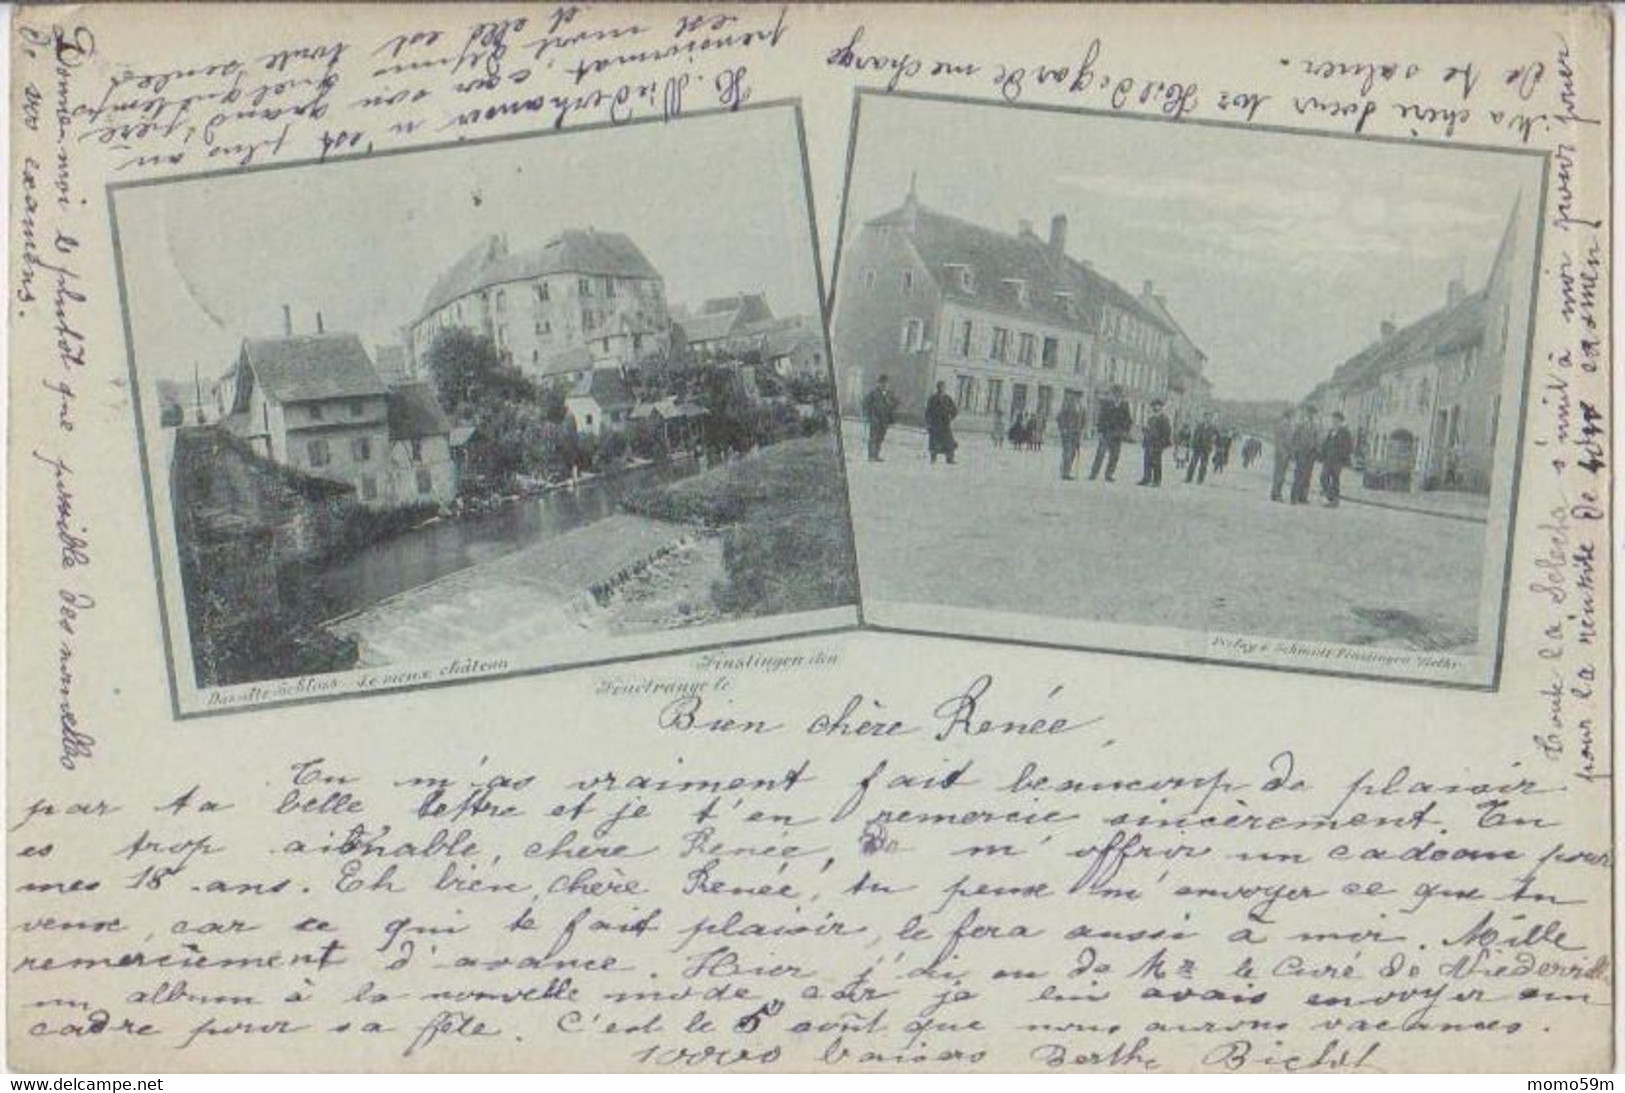 Bien chère Renée,
Tu m'as vraiment fait beaucoup de plaisir
par ta belle lettre et je t'en remercie sincèrement. Tu
es trop aimable, chère Renée, de m'offrir un cadeau pour
mes 18 ans. Eh bien, chère Renée, tu peux m'envoyer ce que tu
veux, car ce qui te fait plaisir, le fera aussi à moi. Mille
remerciement d'avance. Hier j'ai eu de Mr le Curé de Niederville
un album à la nouvelle mode, car je lui avais envoyer un
cadre pour sa fête. C'est le 5 août que nous aurons vacances.
10000 baisers Berthe Bichel
Donne-moi le plutôt que possible des nouvelles
de vos examens.
H. Niederhauser n'est plus au
pensionnat, car son grand'père
est mort depuis quelque temps
et elle est toute seule
Ma chère soeur Hildegarde me charge
de te saluer.
Toute la Selecta s'unit à moi pour prier
pour la réussite de examen
Das alte Schloss - Le vieux château
Finstingen den
Fénétrange le
Verlag v. Schmitt Finstingen
momo59m